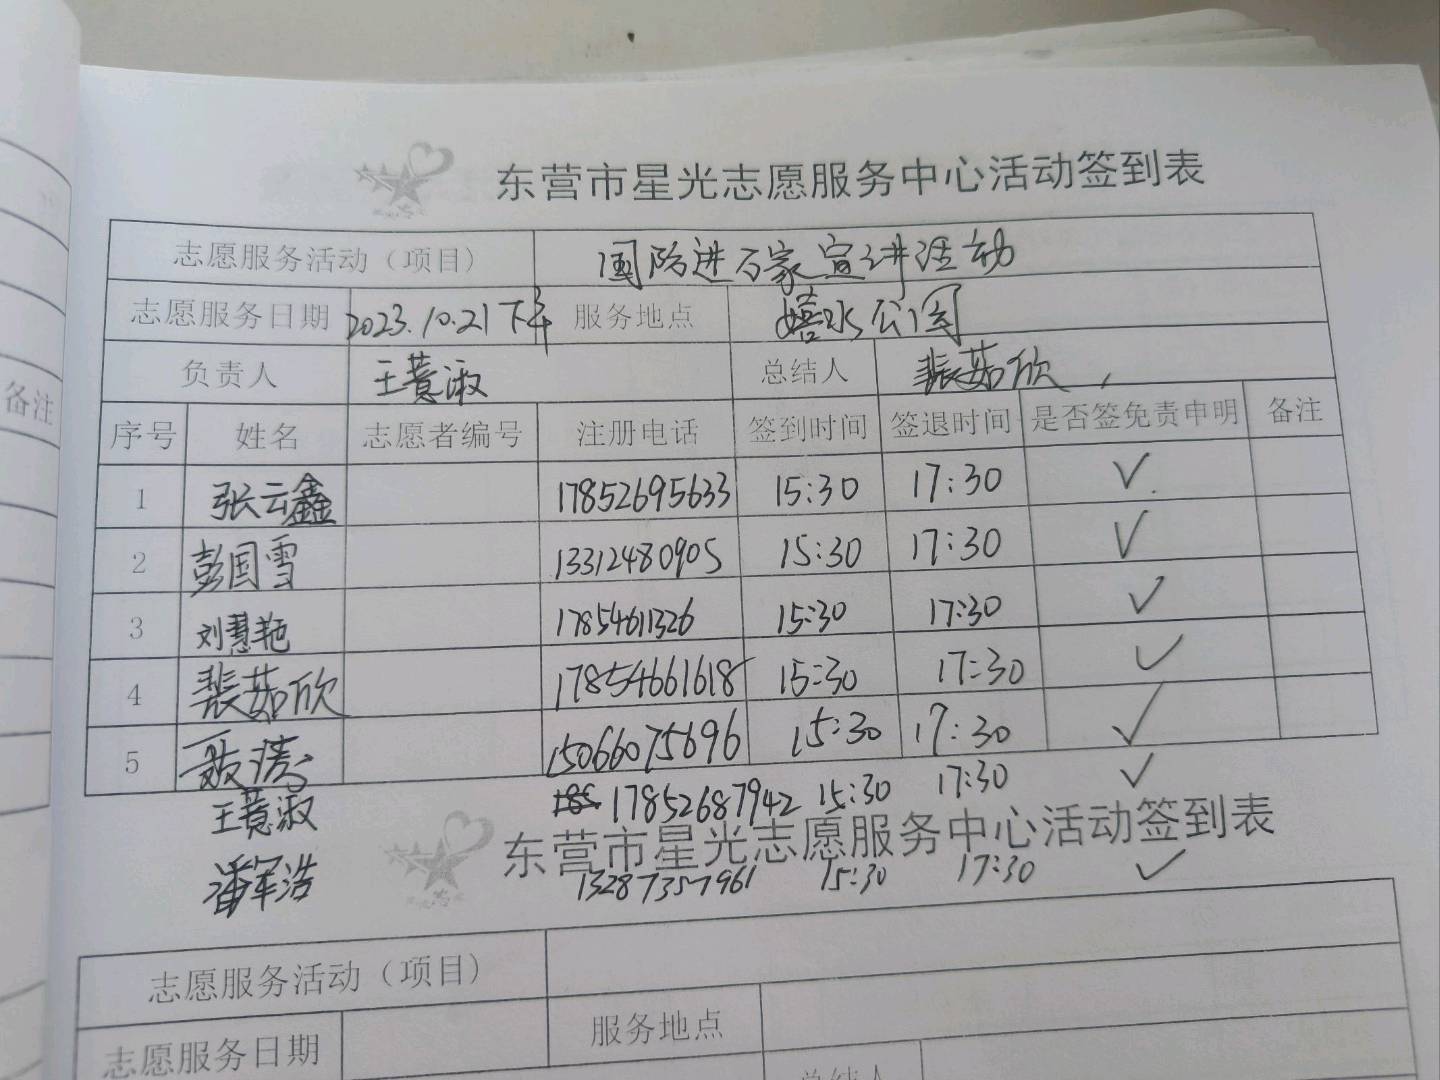 东营市星光志愿服务中心活动签到表
志愿服务活动（项目） 国防进万家宣讲活动
志愿服务日期 2023.10.21下午 服务地点 嬉水公园
负责人 王薏淑 总结人 裴茹欣
序号 姓名 志愿者编号 注册电话 签到时间 签退时间 是否签免责申明 备注
1 张云鑫 17852695633 15:30 17:30 ✓
2 彭国雪 13312480905 15:30 17:30 ✓
3 刘慧艳 17854611326 15:30 17:30 ✓
4 裴茹欣 17854661618 15:30 17:30 ✓
5 15066075696 15:30 17:30 ✓
王薏淑 17852687942 15:30 17:30 ✓
东营市星光志愿服务中心活动签到表
潘军浩 13287357961 15:30 17:30 ✓
志愿服务活动（项目）
志愿服务日期 服务地点
总结人
备注